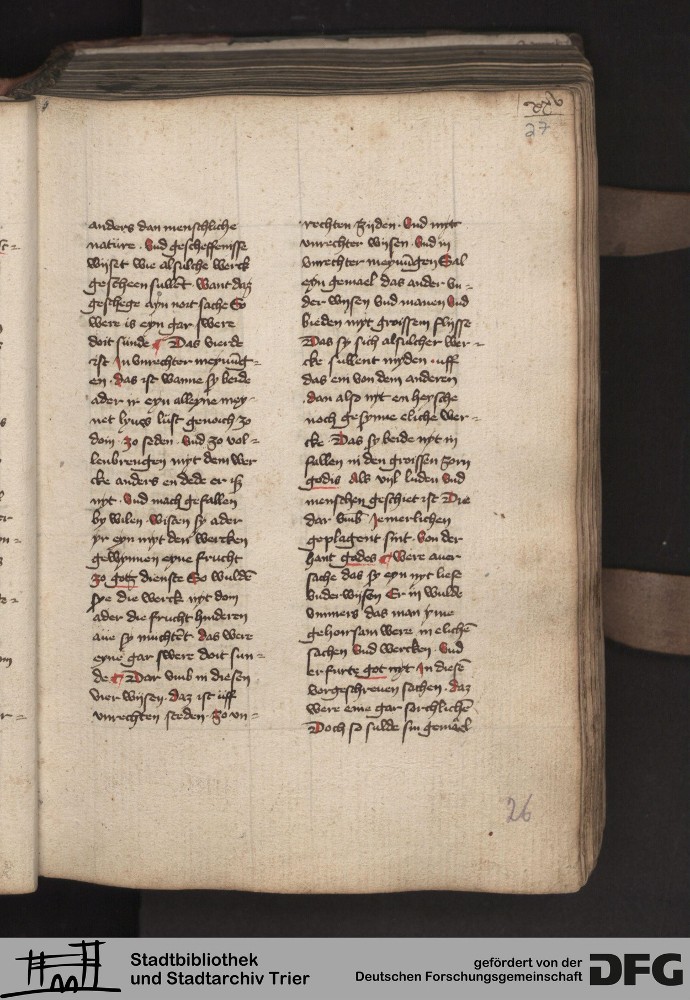 27
anders dan menschliche
natüre. Vnd gescheffenisse
wijset wie alsulche werck
gescheen sullēt. Want daz
geschege ayn noit sache So
were is eyn gar swere
doit sunde Das vierde
ist Jn vnrechter meynūg=
en. das ist wanne sy beide
ader ir eyn alleyne mey-
net lyues lust genoich zo
doin. zo seden. Vnd zo vol=
lenbrengen myt dem wer
cke anders en dede er iß
nyt. Vnd mach gefallen
by wilen. Wisen sy ader
yr eyn myt den wercken
gewynnen eyne frucht
zo gotz dienste So wuldē
sye die werck nyt doin
ader die frucht hinderen
aue sy muchtēt das were
eyne gar swere doit sun=
de Dar vmb in diesen
vier wijsen. daz ist uff
vnrechten steden. zo vn=
rechten zijden. Vnd myt
vnrechter wijsen. Vnd in
vnrechter meynūgen Sal
eyn gemael das ander vn=
der wysen vnd manen Vnd
bieden myt groissem flijsse
Das sy sich alsulcher wer=
cke sullent myden. uff
das ein von dem anderen
dan also nyt en heysche
noch gesynne eliche wer=
cke. Das sy beide nyt in
fallen in den groissen zorn
godis Als vijl luden Vnd
menschen geschiet ist Die
dar vmb Jemerlichen
geplagent sint. Von der
hant godes Were auer
sache das sy eyn nyt liese
vnderwijsen Er in wulde
vmmers das man yme
gehoirsam were in elichē
sachen Vnd wercken. Vnd
er furte got nyt Jn diesē
vorgeschreuen sachen. daz
were eine gar sorchlichē
Doch so sulde sin gemāel
26
Stadtbibliothek
und Stadtarchiv Trier
gefördert von der
Deutschen Forschungsgemeinschaft
DFG